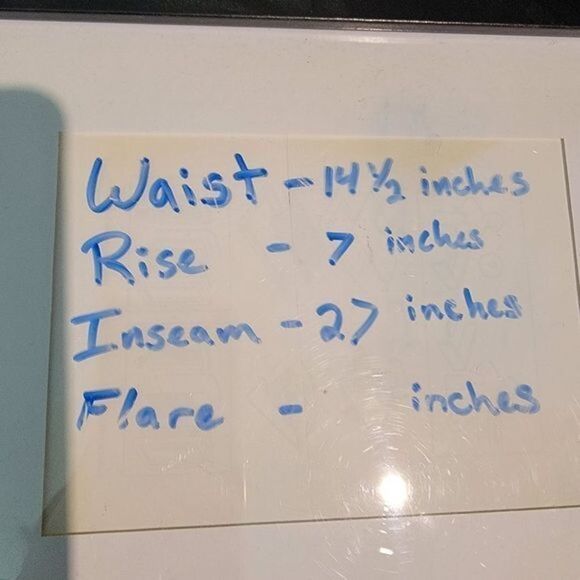 Waist - 14 ½ inches
Rise - 7 inches
Inseam - 27 inches
Flare - inches